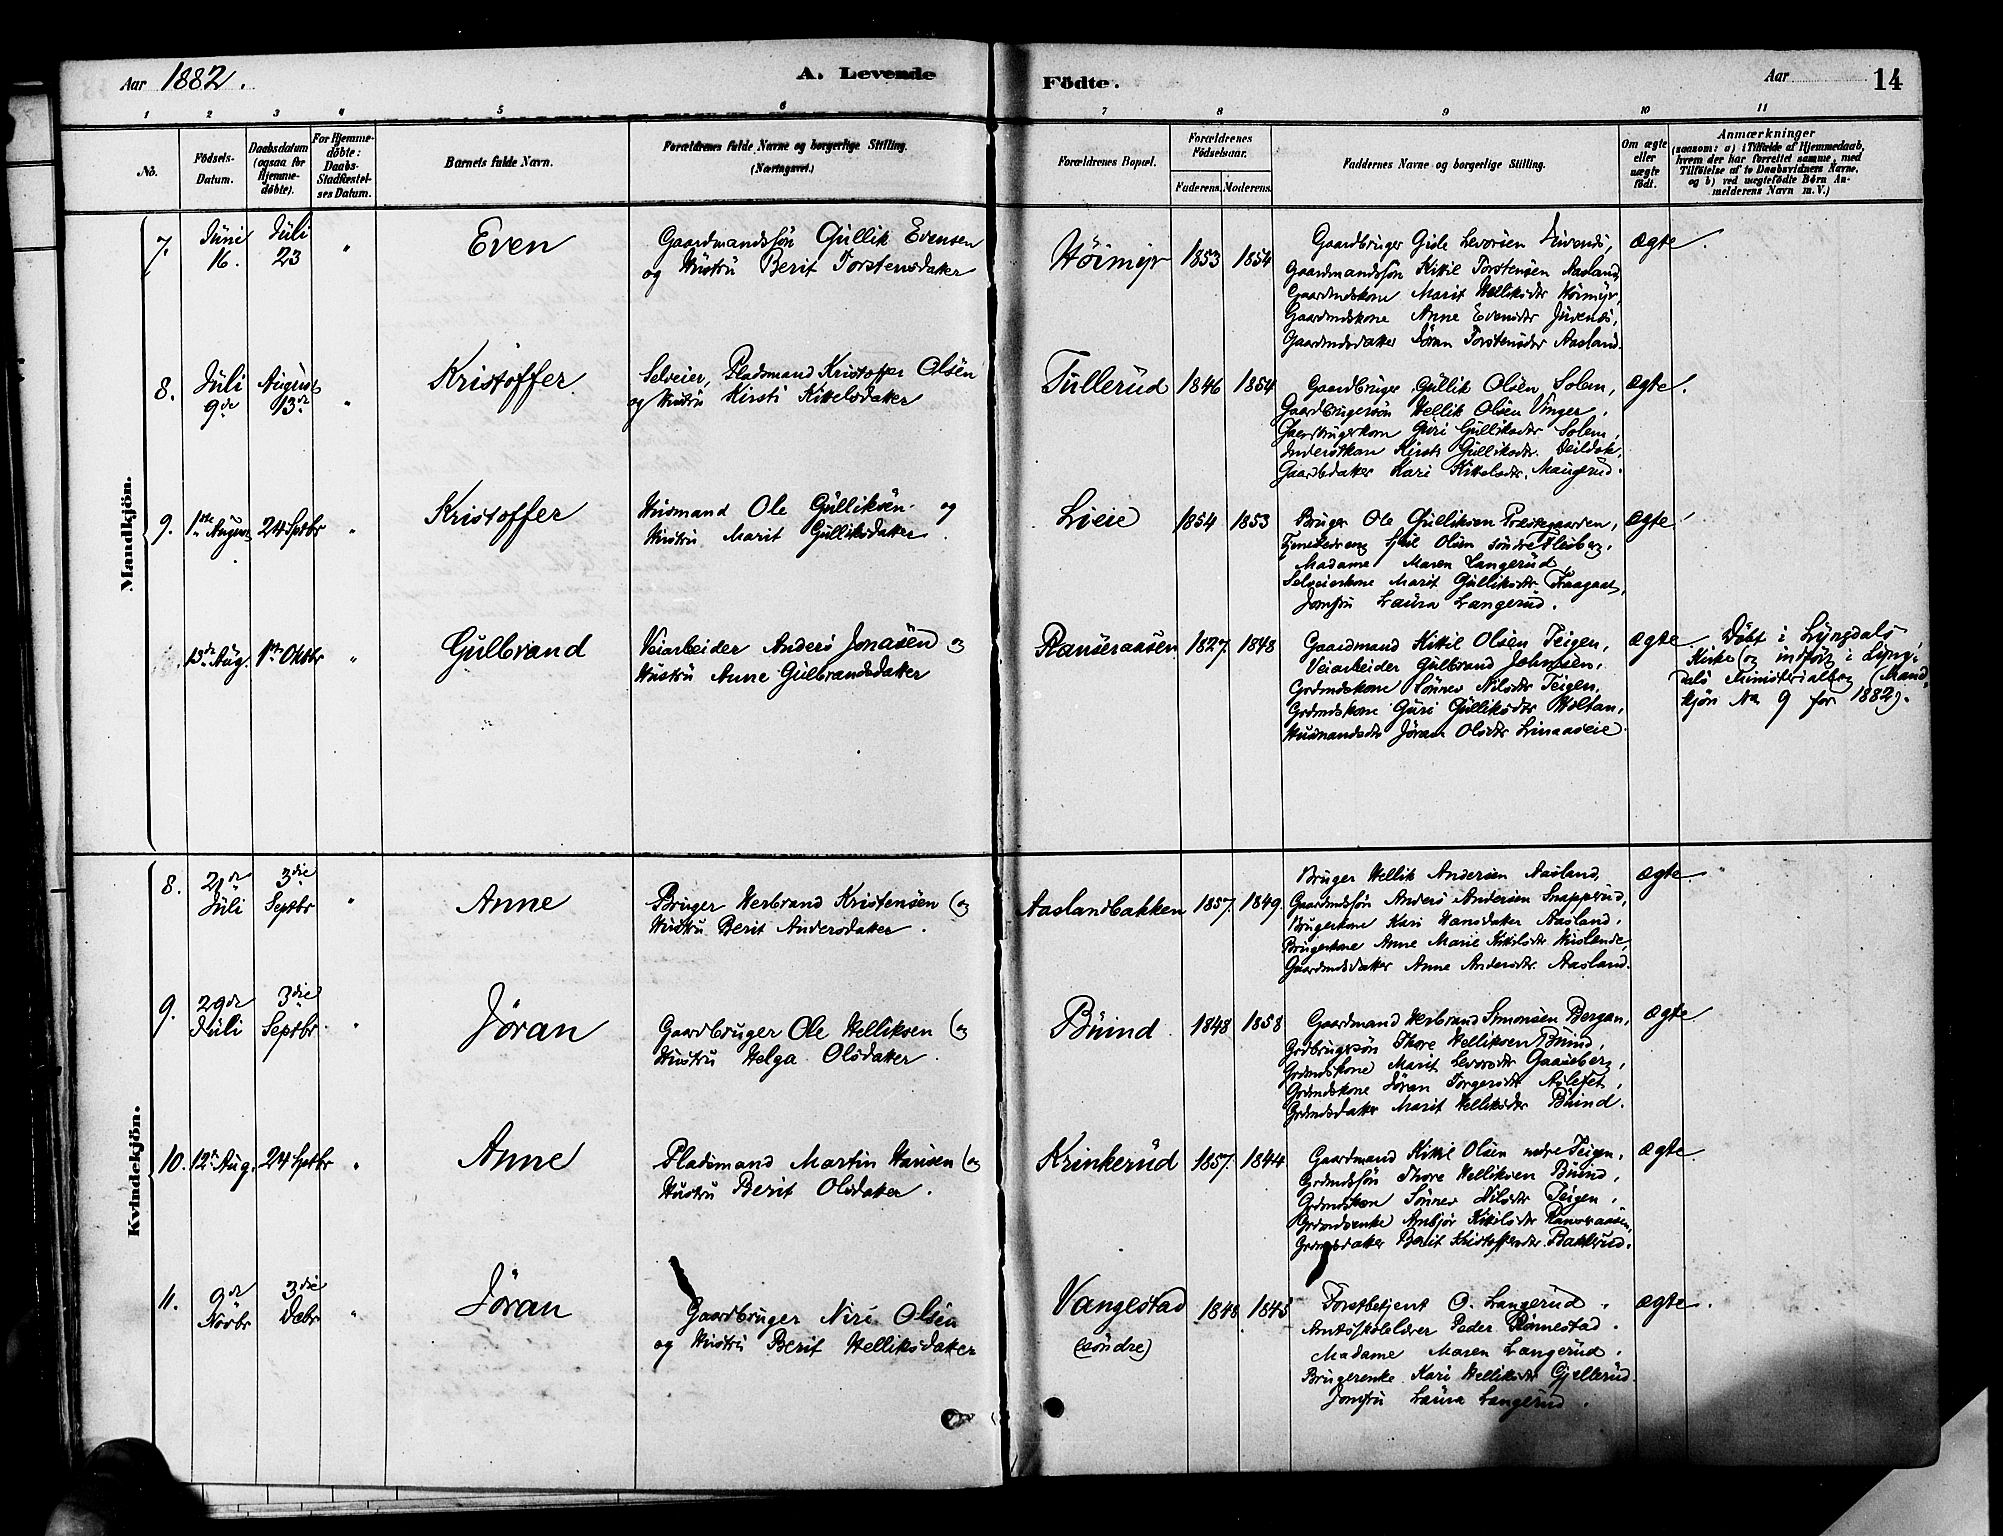 Aar 1882.
A. Levende
Födte.
Aar
14
1 2 3 4 5 6 7 8 9 10 11
No.
Födsels-
Datum.
Daabsdatum
(ogsaa for
Hjemme-
döbte).
For Hjemme-
döbte:
Daabs-
Stadfæstel-
ses Datum.
Barnets fulde Navn.
Forældrenes fulde Navne og borgerlige Stilling.
(Næringsvei.)
Forældrenes Bopæl.
Forældrenes
Födselsaar.
Faderens. Moderens.
Faddernes Navne og borgerlige Stilling.
Om ægte
eller
uægte
födt.
Anmærkninger
(saasom: a) i Tilfælde af Hjemmedaab,
hvem der har forrettet samme, med
Tilföielse af to Daabsvidners Navne,
og b) ved uægtefödte Börn An-
melderens Navn m.V.)
Mandkjön.
7.
Juni
16.
Juli
23
"
Even
Gaardmandssön Gullik Evensen
og Hustru Berit Torstensdatter
Höimyr
1853
1854
Gaardbruger Gisle Levorsen Juvenes,
Gaardmandssön Kittil Torstensen Aasland,
Gaardmdskone Marit Helliksdtr Höimyr,
Gaardmdskone Anne Evensdtr Juvenes,
Gaardmdsdatter Jöran Torstensdtr Aasland.
ægte.
8.
Juli
9de
August
13de
"
Kristoffer
Selveier, Pladsmand Kristoffer Olsen
og Hustru Kirsti Kittelsdatter
Tullerud
1846
1854
Gaardbruger Gullik Olsen Solem,
Gaardbrugersön Hellik Olsen Vinger,
Gaardbrugerkone Guri Gulliksdtr Solem,
Kirsti Gulliksdtr.
Gaardbdatter Kari Kittelsdtr. Maugerud.
ægte.
9.
1ste August
24 Septbr
"
Kristoffer
Husmand Ole Gulliksen og
Hustru Marit Gulliksdatter.
Lieie
1854
1853
Bruger Ole Gulliksen Præstegaarden,
Tjenestedreng Olsen söndre Flesberg,
Madame Maren Langerud,
Selveierkone Marit Gulliksdtr
Jomfru Laura Langerud.
ægte
13de Aug.
1ste Oktbr
"
Gulbrand
Veiarbeider Anders Jonasen og
Hustru Anne Gulbrandsdatter
Ranseraasen
1827
1848
Gaardmand Kittil Olsen Teigen,
Veiarbeider Gulbrand Johnsen,
Grdmdskone Sönnev Nilsdtr Teigen,
Grdmdskone Guri Gulliksdtr Holtan,
Husmandsdtr Jöran Olsdtr
ægte.
Döbt i Lyngdals
Kirke og indfört i Lyng-
dals Ministerialbog (Mand-
kjön No 9 for 1882).
Kvindekjön.
8.
21de
Juli
3die
Septbr
"
Anne
Bruger Herbrand Kristensen og
Hustru Berit Andersdatter.
Aaslandbakken
1857
1849
Bruger Hellik Andersen Aasland,
Gaardmdssön Anders Andersen Snapperud,
Brugerkone Kari Hansdatter Aasland,
Brugerkone Anne Marie Kittilsdtr
Gaardmdsdatter Anne Andersdtr. Aasland.
ægte.
9.
29de
Juli
3die
Septbr
"
Jöran
Gaardbruger Ole Helliksen og
Hustru Helga Olsdatter.
Buind
1848
1858
Gaardmand Herbrand Simonsen Bergan,
Grdbrugersön Thore Helliksen Buind,
Grdmdskone Marit Levorsdtr Gaaseberg,
Grdmdskone Jöran Torgersdtr Aslefet,
Grdmdsdatter Marit Helliksdtr Buind.
ægte.
10.
12te Aug.
24 Septbr
"
Anne
Pladsmand Martin Hansen og
Hustru Berit Olsdatter.
Krinkerud
1857
1844
Gaardmand Kittil Olsen nedre Teigen,
Grdmdssön Thore Helliksen Buind,
Grdmdskone Sönnev Nilsdtr Teigen,
Grdmdsenke Ambjör Kittilsdtr Ranseraasen,
Grdmdsdatter Berit Kristoffersdtr Bakkerud.
ægte.
11.
9de
Novbr
3die
Decbr
"
Jöran
Gaardbruger Niri Olsen
og Hustru Berit Helliksdatter
Vangestad
(söndre)
1848
1845
Forstbetjent O. Langerud.
Amtsskolelærer Peder Rönnestad.
Madame Maren Langerud.
Brugerenke Kari Helliksdtr Gjellerud.
Jomfru Laura Langerud.
ægte.